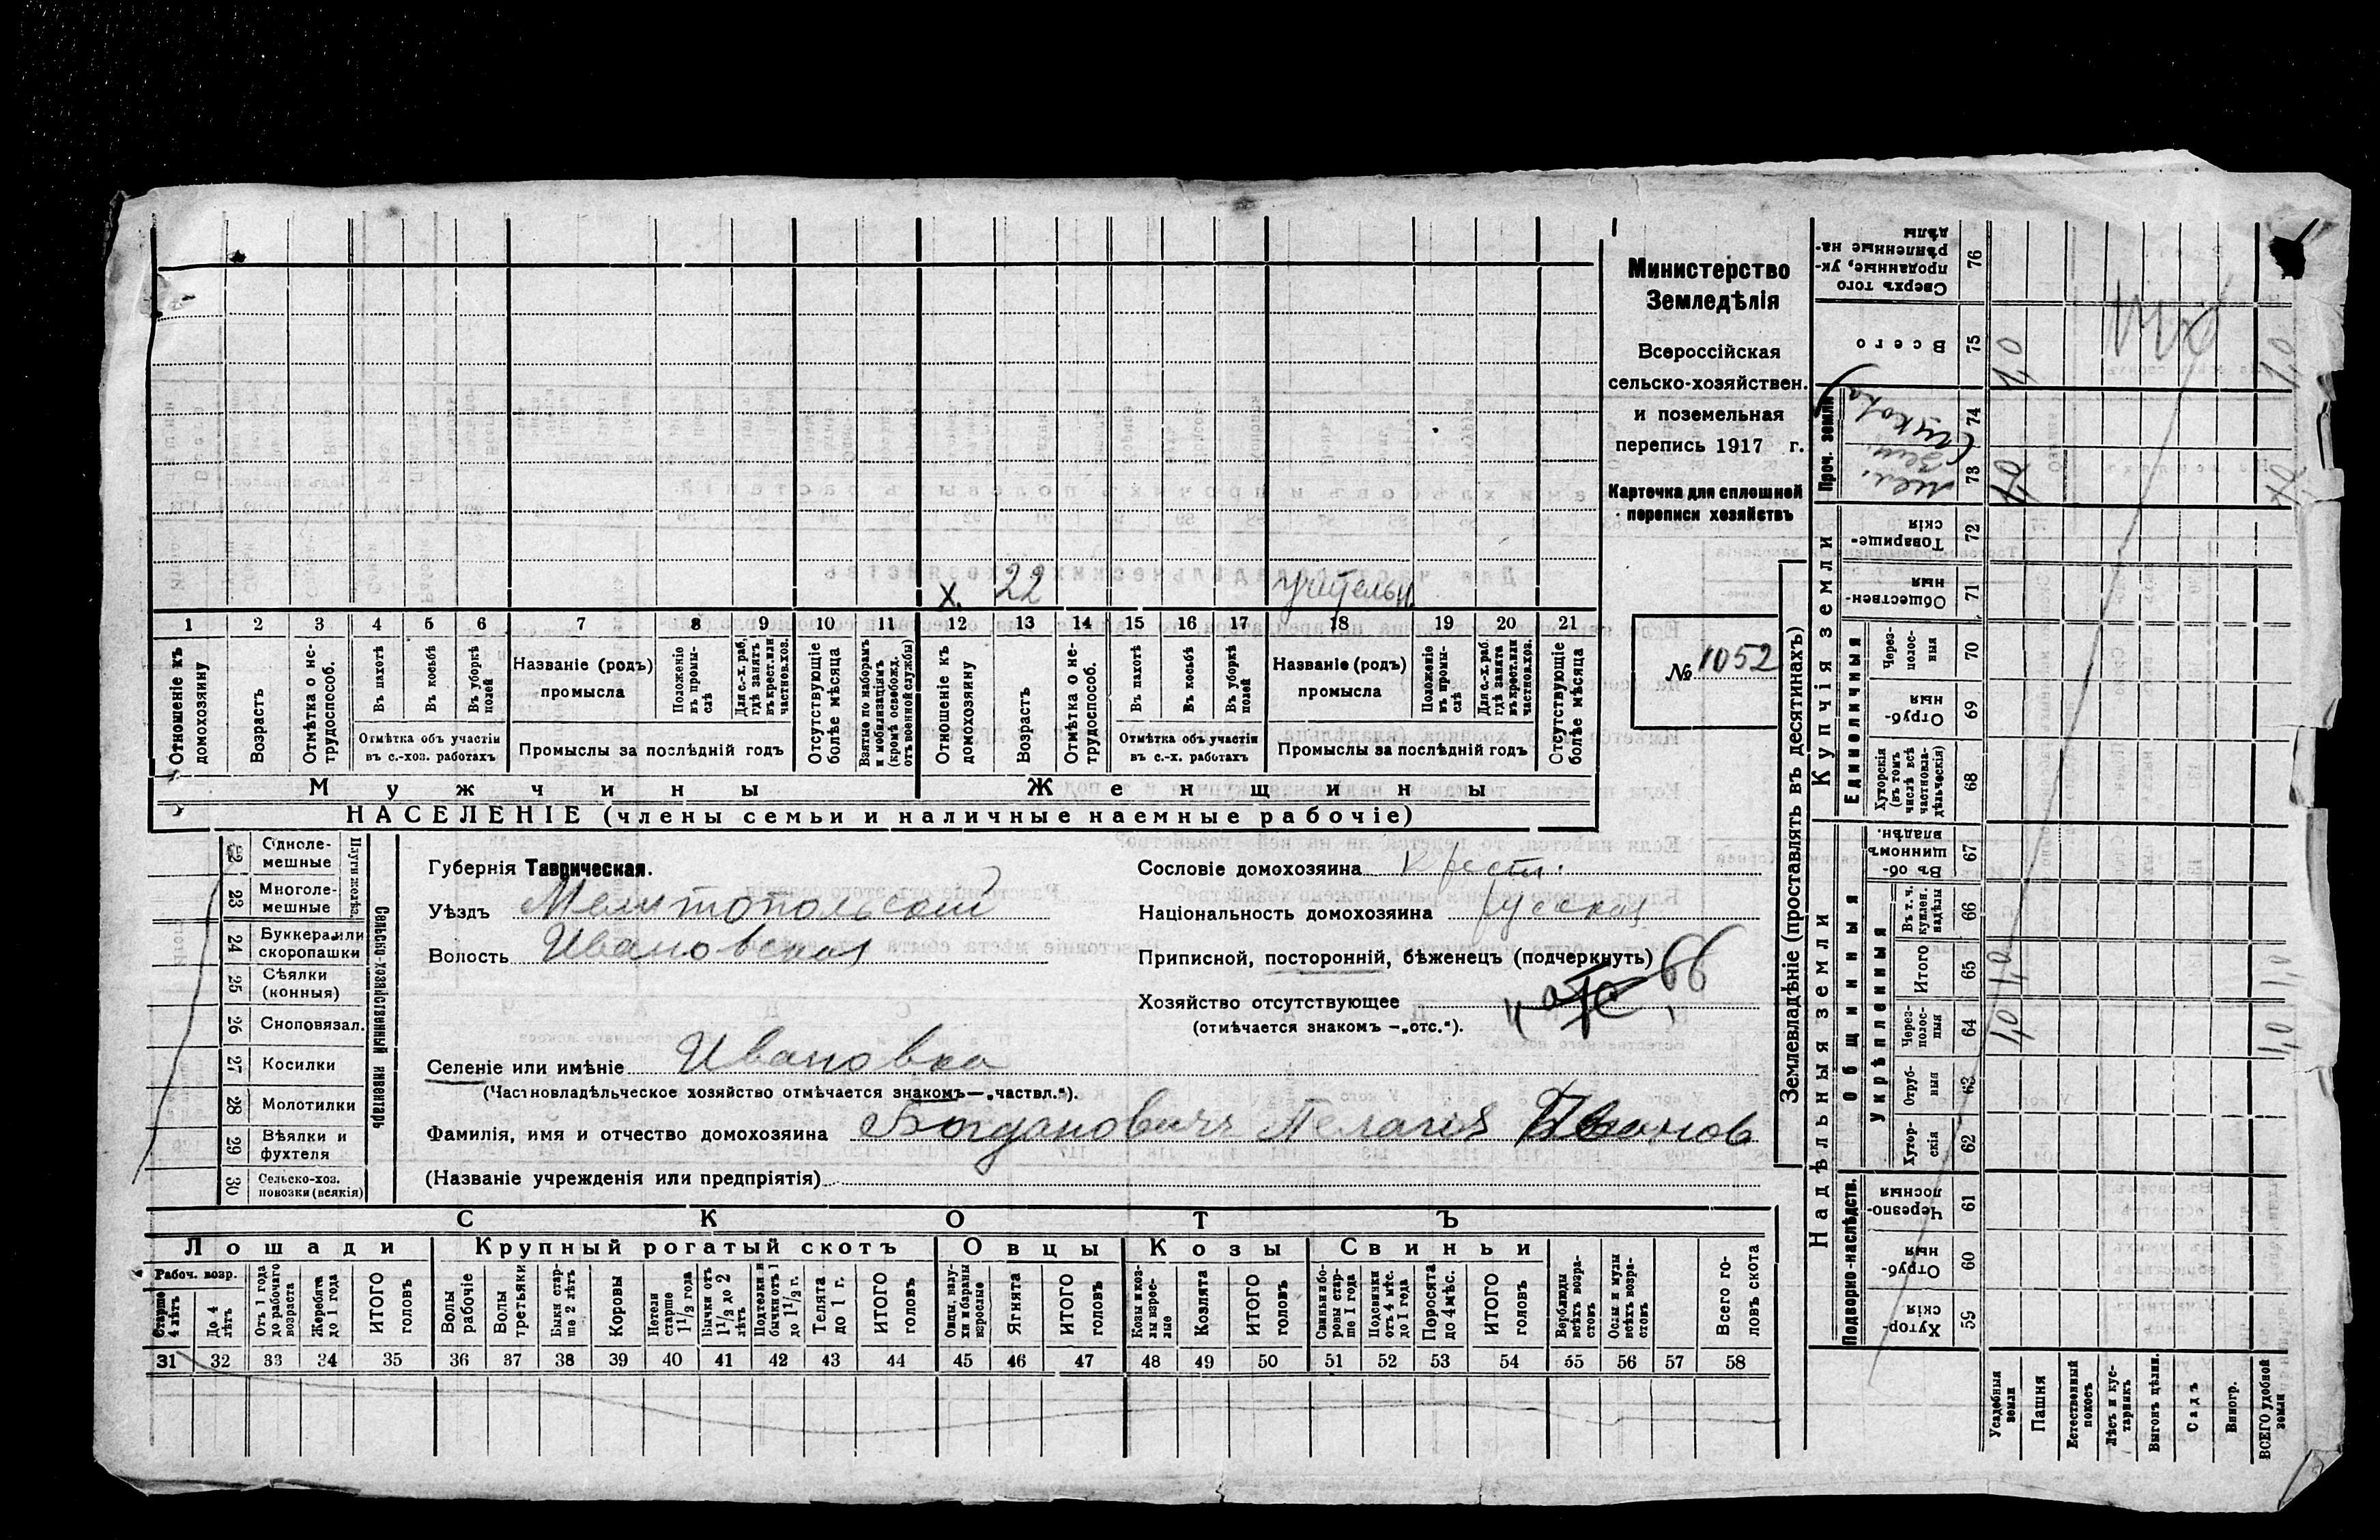 х. 22 учительн.
1 2 3 4 5 6 7 8 9 10 11 12 13 14 15 16 17 18 19 20 21
Отношеніе къ домохозяину
Возрастъ
Отмѣтка о не-трудоспособ.
Въ пахотѣ
Въ косьбѣ
Въ уборкѣ полей
Отмѣтка объ участіи въ с.-хоз. работахъ
Названіе (родъ) промысла
Положеніе въ промы-слѣ
Для с.-х. раб. гдѣ занятъ въ крест. или частнов. хоз.
Промыслы за послѣдній годъ
Отсутствующіе болѣе мѣсяца
Взятые по наборамъ и мобилизаціямъ (кромѣ освобожд. отъ военной службы)
Отношеніе къ домохозяину
Возрастъ
Отмѣтка о не-трудоспособ.
Въ пахотѣ
Въ косьбѣ
Въ уборкѣ полей
Отмѣтка объ участіи въ с.-х. работахъ
Названіе (родъ) промысла
Положеніе въ промы-слѣ
Для с.-х. раб. гдѣ занята въ крест. или частнов. хоз.
Промыслы за послѣдній годъ
Отсутствующіе болѣе мѣсяца
Мужчины Женщины
НАСЕЛЕНІЕ (члены семьи и наличные наемные рабочіе)
Министерство
Земледѣлія
Всероссійская
сельско-хозяйствен.
и поземельная
перепись 1917 г.
Карточка для сплошной
переписи хозяйствъ
№ 1052
Сельско-хозяйственный инвентарь
Плуги желѣз.
22 Одноле-мешные
23 Многоле-мешные
24 Буккера или скоропашки
25 Сѣялки (конныя)
26 Сноповязал.
27 Косилки
28 Молотилки
29 Вѣялки и фухтеля
30 Сельско-хоз. повозки (всякія)
Губернія Таврическая.
Уѣздъ Мелитопольский
Волость Ивановская
Сословіе домохозяина крест.
Національность домохозяина русская
Приписной, посторонній, бѣженецъ (подчеркнуть) 66
Хозяйство отсутствующее
(отмѣчается знакомъ —„отс.“).
Селеніе или имѣніе Ивановка
(Частновладѣльческое хозяйство отмѣчается знакомъ—„частвл.“).
Фамилія, имя и отчество домохозяина Богдановичъ Пелагія Иванов
(Названіе учрежденія или предпріятія)
СКОТЪ
Лошади Крупный рогатый скотъ Овцы Козы Свиньи
Рабоч. возр.
Старше 4 лѣтъ
До 4 лѣтъ
Отъ 1 года до рабочаго возраста
Жеребята до 1 года
ИТОГО головъ
Волы рабочіе
Волы третьяки
Быки стар-ше 2 лѣтъ
Коровы
Нетели старше 1½ года
Бычки отъ 1½ до 2 лѣтъ
Подтелки и бычки отъ 1 до 1½ г.
Телята до 1 г.
ИТОГО головъ
Овцы, валу-хи и бараны взрослые
Ягнята
ИТОГО головъ
Козы и коз-лы взрос-лые
Козлята
ИТОГО головъ
Свиньи и бо-ровы стар-ше 1 года
Подсвинки отъ 4 мѣс. до 1 года
Поросята до 4 мѣс.
ИТОГО головъ
Верблюды всѣхъ возра-стовъ
Ослы и мулы всѣхъ возра-стовъ
Всего го-ловъ скота
31 32 33 34 35 36 37 38 39 40 41 42 43 44 45 46 47 48 49 50 51 52 53 54 55 56 57 58
Землевладѣніе (проставлять въ десятинахъ)
Надѣльныя земли
Купчія земли
Проч. земли
Подворно-наслѣдств.
Общинныя
Укрѣпленныя
Единоличныя
59 Хутор-скія
60 Отруб-ныя
61 Черезпо-лосныя
62 Хутор-скія
63 Отруб-ныя
64 Через-полос-ныя 1,0 1,0
65 Итого 1,0 1,0
66 Въ т. ч. куплен. надѣлы
67 Въ об-щинномъ владѣн.
68 Хуторскія (въ томъ числѣ всѣ частновла-дѣльческія)
69 Отруб-ныя
70 Через-полос-ныя
71 Обществен-ныя
72 Товарище-скія
73
74
75 Всего 1,0 1,0
76 Сверхъ того проданные, ук-рѣпленные на-дѣлы
Усадебныя земли
Пашня
Естественный покосъ
Лѣсъ и кус-тарникъ
Выгонъ цѣлин.
Садъ
Виногр.
ВСЕГО удобной земли